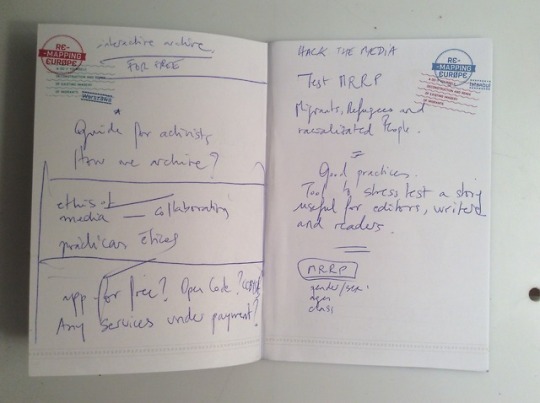 RE-
MAPPING
EUROPE
interactive archive,
FOR FREE
Guide for activists
How we archive?
ethis of
media — collaborating
prácticas éticas
app for free? Open Code?
Any services under payment?
HACK THE MEDIA
Test MRRP
Migrants, Refugees and
racializated People.
=
Good practices.
Tool to stress test a story
useful for editors, writers
and readers.
MRRP
gender/sex.
ages
class
RE-
MAPPING
EUROPE